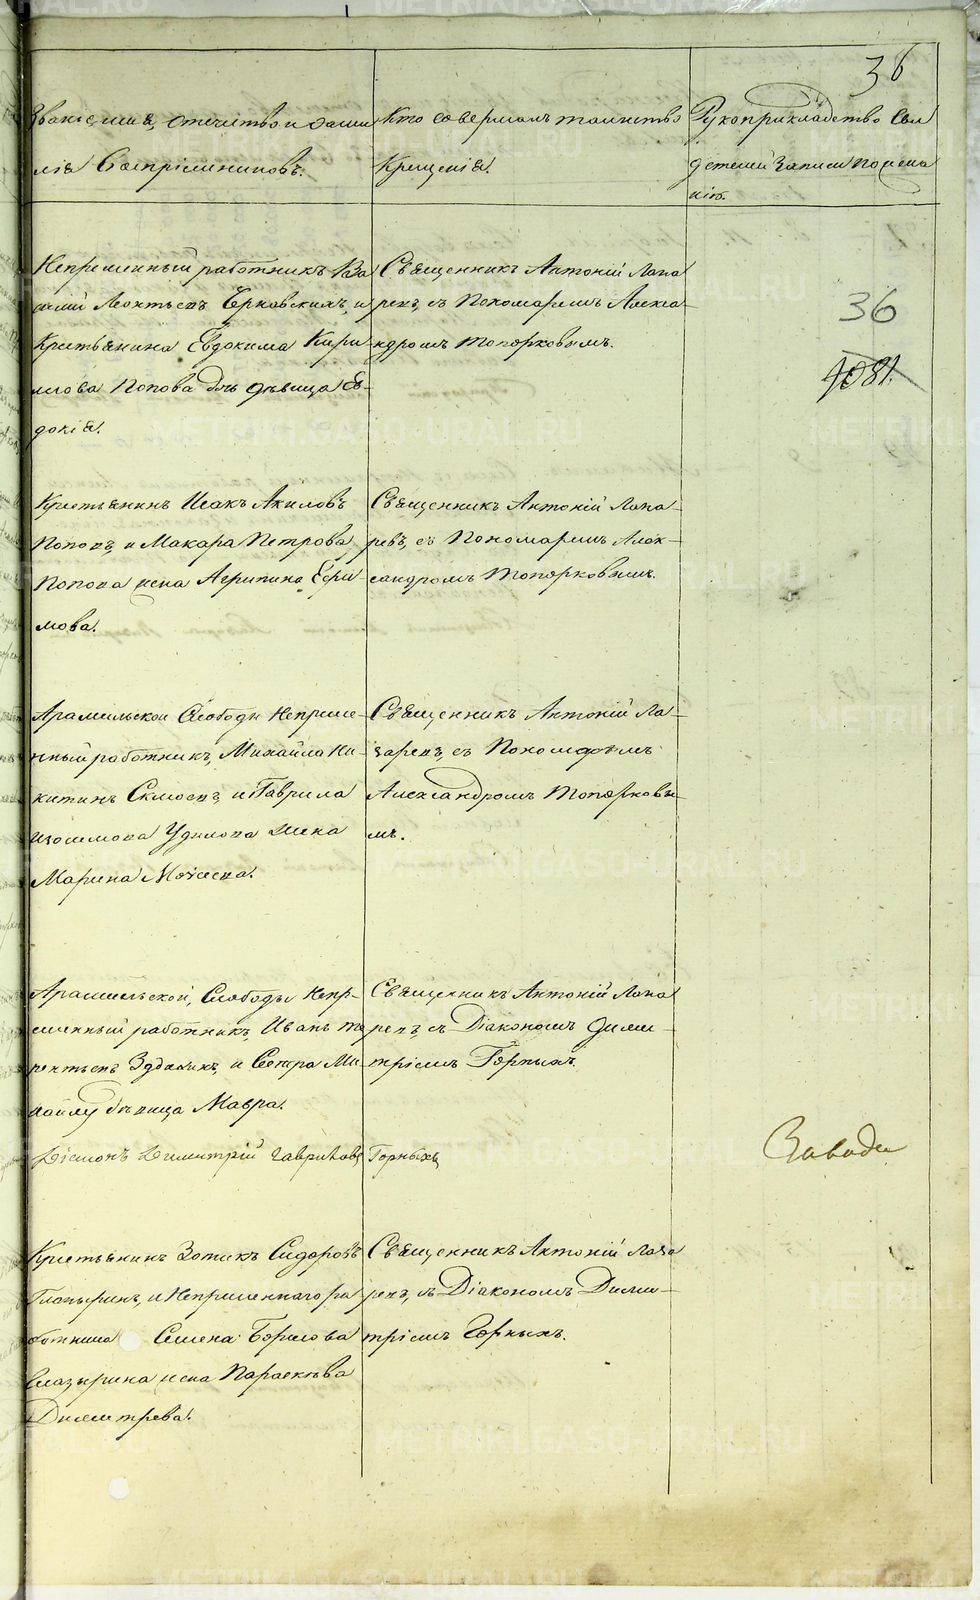 36
Званіе, имя, отечество и фами
лія Воспріемниковъ.
Кто совершалъ таинство
Крещенія.
Рукоприкладство Сви
детелей Записи по жела
нію.
Непременный работникъ Ва
силий Леонтьевъ Черковскихъ, и
Крестьянина Евдокима Кири
лова Попова дчь дѣвица Ев-
докія.
Священникъ Антоній Лаза
ревъ, съ Пономаремъ Алекса
ндромъ Топорковымъ.
36
4081.
Крестьянинъ Исакъ Акиловъ
Поповъ, и Макара Петрова
Попова жена Агрипина Ефи
мова.
Священникъ Антоній Лаза-
ревъ, съ Пономаремъ Алек-
сандромъ Топорковымъ.
Арамильской Слободы Непреме-
нный работникъ, Михайло Ни-
китинъ и Гаврила
Изосимова жена
Марина Моисеева.
Священникъ Антоній Ла-
заревъ, съ Пономаремъ
Александромъ Топорковы-
мъ.
Арамильской, Слободы Непр-
еменный работникъ, Иванъ Те
рентьевъ и Сестра Ми-
хайлу дѣвица Мавра.
Священникъ Антоній Лаза
ревъ, съ Діакономъ Дими-
тріемъ Горныхъ.
Діаконъ Димитрій Гавриловъ Горныхъ
Заводы
Крестьянинъ Зотикъ Сидоровъ
и Непременнаго ра
ботника Семена Борисова
Глазырина жена Параскѣва
Димитрева.
Священникъ Антоній Лаза
ревъ, съ Діакономъ Дими-
тріемъ Горныхъ.
METRIKI.GASO-URAL.RU